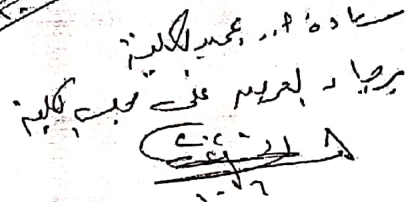 سيادة أ.د. عميد الكلية
برجاء العرض على مجلس الكلية